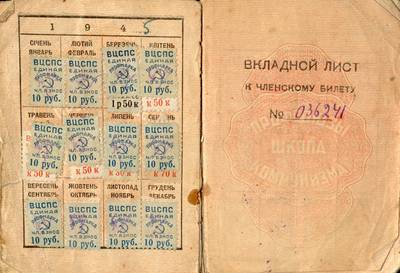 1 9 4 5
СІЧЕНЬ ЛЮТИЙ БЕРЕЗЕНЬ КВІТЕНЬ
ЯНВАРЬ ФЕВРАЛЬ
ВЦСПС ВЦСПС ВЦСПС ВЦСПС
ЕДИНАЯ ЕДИНАЯ ЕДИНАЯ ЕДИНАЯ
ЧЛ. ВЗНОС ЧЛ. ВЗНОС ЧЛ. ВЗНОС ЧЛ. ВЗНОС
10 руб. 10 руб. 10 руб. 10 руб.
1 р 50 к к 50 к
ТРАВЕНЬ ЧЕРВЕНЬ ЛИПЕНЬ СЕРПЕНЬ
ВЦСПС ВЦСПС ВЦСПС ВЦСПС
ЕДИНАЯ ЕДИНАЯ ЕДИНАЯ ЕДИНАЯ
ЧЛ. ВЗНОС ЧЛ. ВЗНОС ЧЛ. ВЗНОС ЧЛ. ВЗНОС
10 руб. 10 руб. 10 руб. 10 руб.
к 50 к к 50 к к 70 к
ВЕРЕСЕНЬ ЖОВТЕНЬ ЛИСТОПАД ГРУДЕНЬ
СЕНТЯБРЬ ОКТЯБРЬ НОЯБРЬ ДЕКАБРЬ
ВЦСПС ВЦСПС ВЦСПС ВЦСПС
ЕДИНАЯ ЕДИНАЯ ЕДИНАЯ ЕДИНАЯ
ЧЛ. ВЗНОС ЧЛ. ВЗНОС ЧЛ. ВЗНОС ЧЛ. ВЗНОС
10 руб. 10 руб. 10 руб. 10 руб.
ВКЛАДНОЙ ЛИСТ
К ЧЛЕНСКОМУ БИЛЕТУ
№ 036241